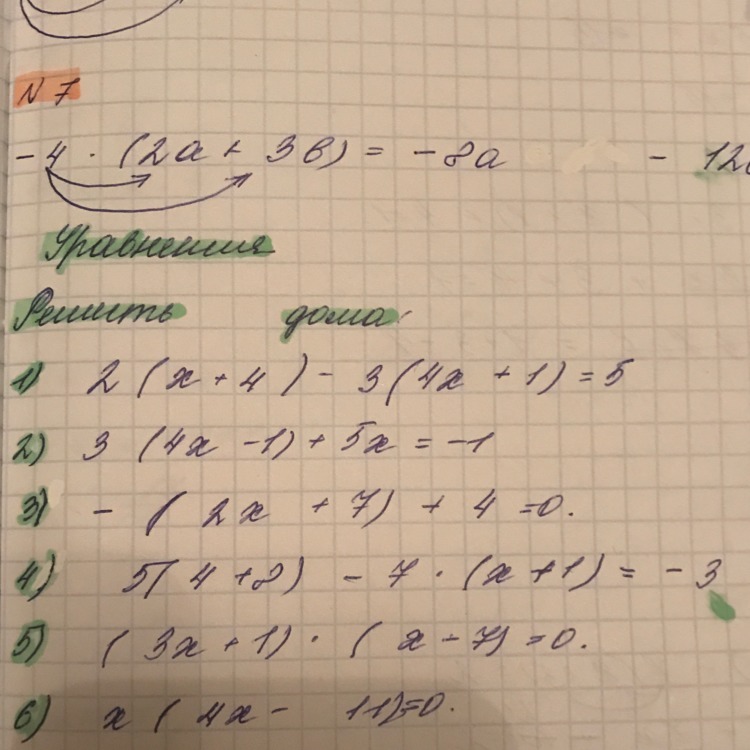 N 7
-4 · (2a + 3в) = -8a - 12в
Уравнения
Решить дома:
1) 2 (x + 4) - 3(4x + 1) = 5
2) 3 (4x - 1) + 5x = -1
3) - (2x + 7) + 4 = 0.
4) 5(4 + 8) - 7 · (x + 1) = -3
5) (3x + 1) · (x - 7) = 0.
6) x (4x - 11) = 0.